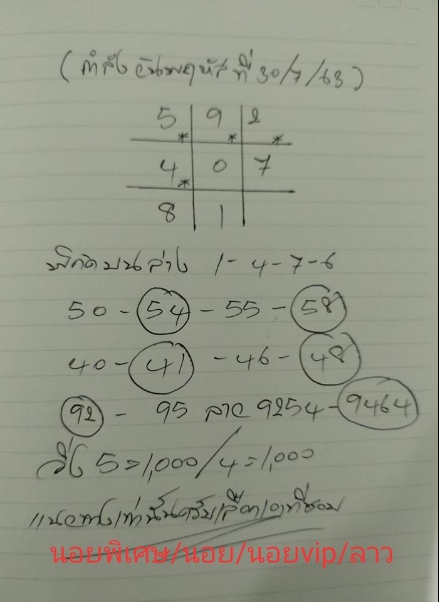 (กำลังวันพฤหัสที่ 30/7/63)
5 9 2
4 0 7
8 1
พิกัดบนล่าง 1-4-7-6
50 - 54 - 55 - 58
40 - 41 - 46 - 48
92 - 95 ลาว 9254 - 9464
วิ่ง 5=1,000/4=1,000
แนวทางเท่านั้นครับเลือกเอาที่ชอบ
นอยพิเศษ/นอย/นอยvip/ลาว